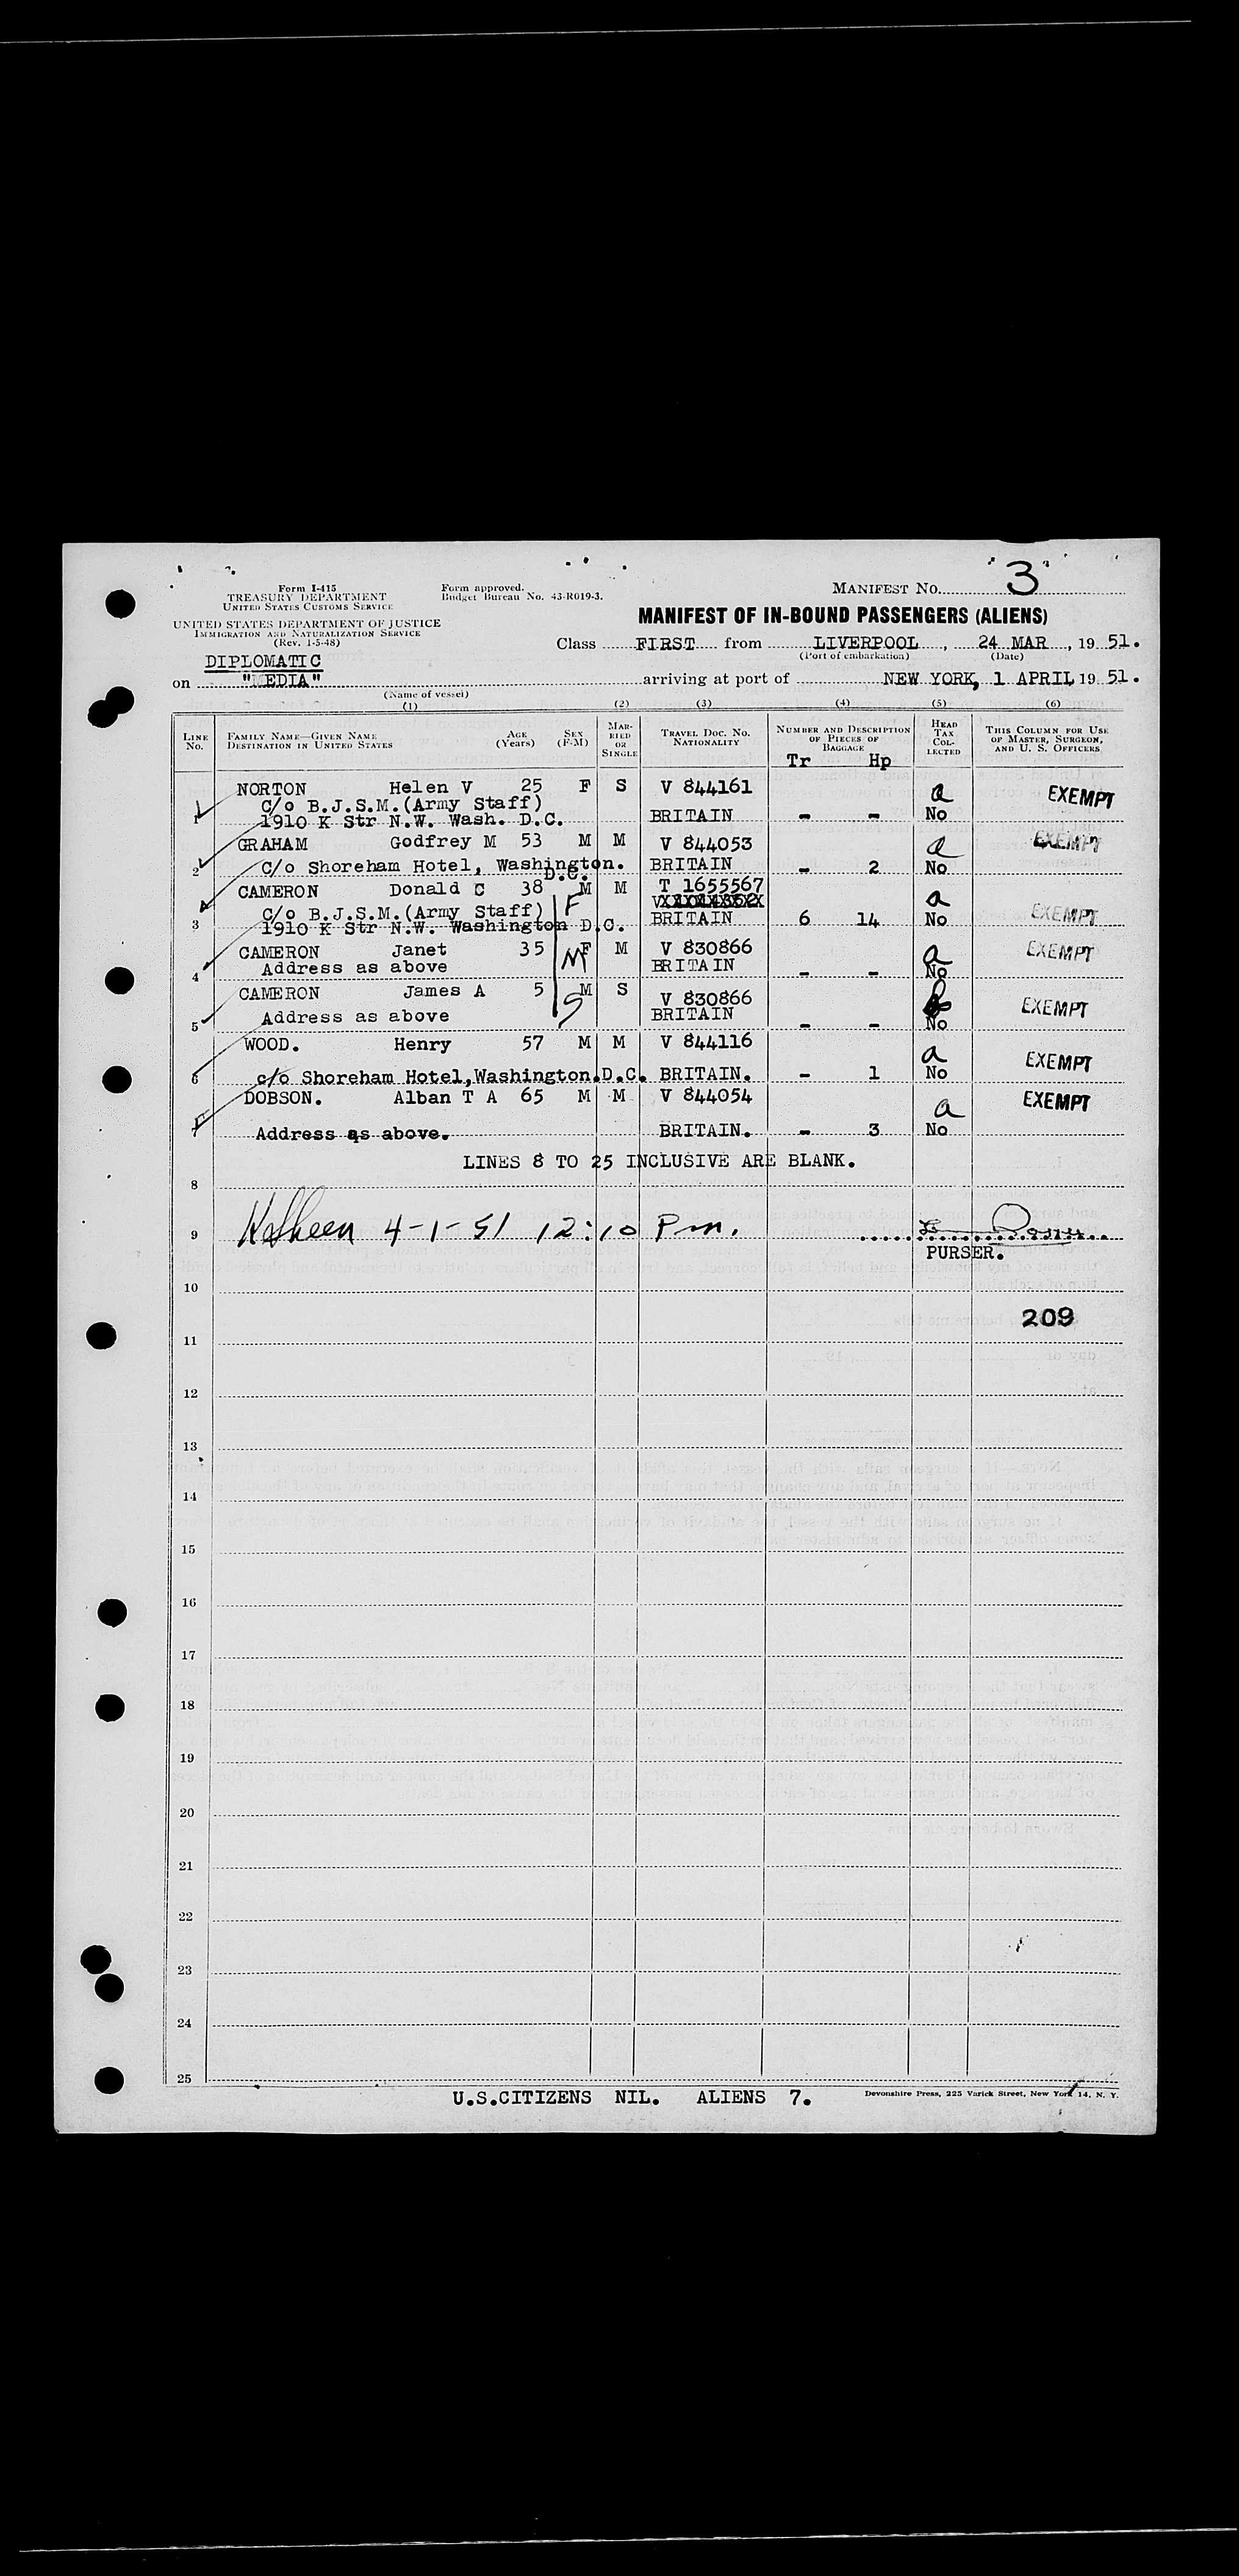 Form I-415
TREASURY DEPARTMENT
UNITED STATES CUSTOMS SERVICE
Form approved.
Budget Bureau No. 43-R019-3.
MANIFEST NO. 3
MANIFEST OF IN-BOUND PASSENGERS (ALIENS)
UNITED STATES DEPARTMENT OF JUSTICE
IMMIGRATION AND NATURALIZATION SERVICE
(Rev. 1-5-48)
Class FIRST from LIVERPOOL, 24 MAR, 1951.
(Port of embarkation) (Date)
DIPLOMATIC
on "MEDIA" arriving at port of NEW YORK, 1 APRIL 1951.
(Name of vessel)
(1) (2) (3) (4) (5) (6)
LINE NO. FAMILY NAME—GIVEN NAME DESTINATION IN UNITED STATES AGE (Years) SEX (F-M) MARRIED OR SINGLE TRAVEL DOC. NO. NATIONALITY NUMBER AND DESCRIPTION OF PIECES OF BAGGAGE HEAD TAX COLLECTED THIS COLUMN FOR USE OF MASTER, SURGEON, AND U. S. OFFICERS
Tr Hp
NORTON Helen V 25 F S V 844161 a EXEMPT
C/o B.J.S.M.(Army Staff)
1 1910 K Str N.W. Wash. D.C. BRITAIN - - No
GRAHAM Godfrey M 53 M M V 844053 a EXEMPT
2 C/o Shoreham Hotel, Washington. BRITAIN - 2 No
D.C.
CAMERON Donald C 38 M M T 1655567 a
C/o B.J.S.M.(Army Staff) F EXEMPT
3 1910 K Str N.W. Washington D.C. BRITAIN 6 14 No
CAMERON Janet 35 F M V 830866 a EXEMPT
4 Address as above M BRITAIN - - No
CAMERON James A 5 M S V 830866 EXEMPT
5 Address as above S BRITAIN - - No
WOOD. Henry 57 M M V 844116 a EXEMPT
6 c/o Shoreham Hotel,Washington.D.C. BRITAIN. - 1 No
DOBSON. Alban T A 65 M M V 844054 a EXEMPT
7 Address as above. BRITAIN. - 3 No
LINES 8 TO 25 INCLUSIVE ARE BLANK.
8
9 4-1-51 12:10 Pm.
PURSER.
10
209
11
12
13
14
15
16
17
18
19
20
21
22
23
24
25
U.S.CITIZENS NIL. ALIENS 7.
Devonshire Press, 225 Varick Street, New York 14, N. Y.